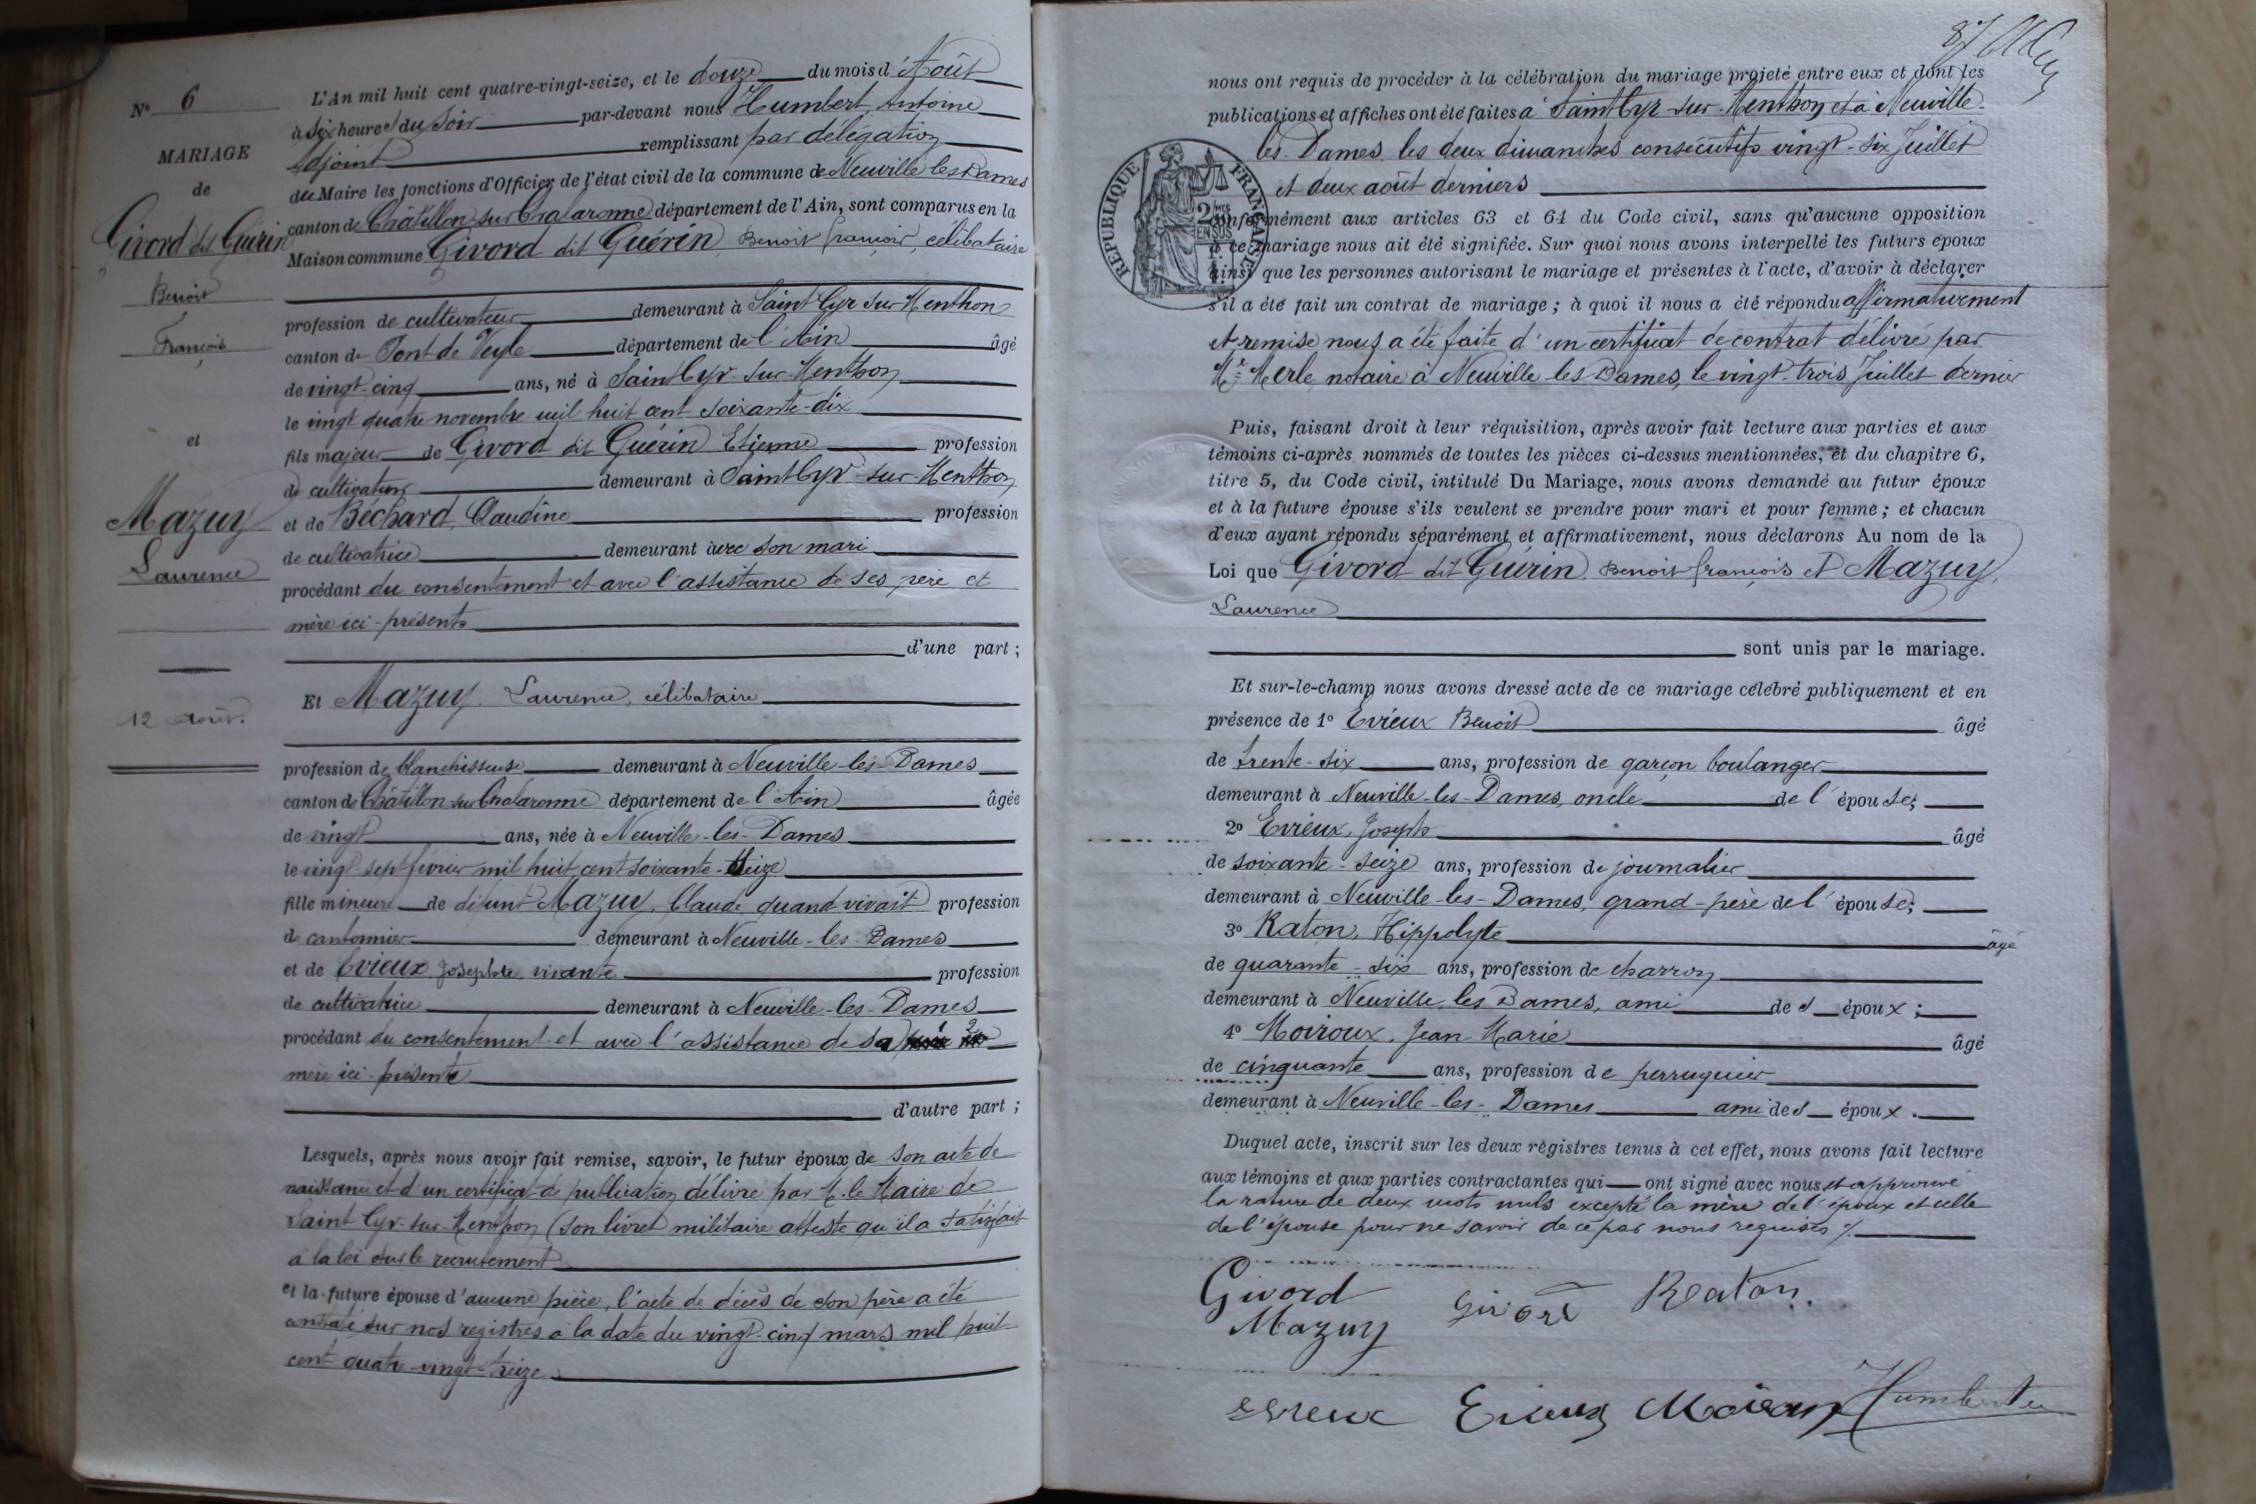 N° 6
MARIAGE
de
Givord dit Guérin
Benoit
François
et
Mazuy
Laurence
12 août.
L'An mil huit cent quatre-vingt-seize, et le douze du mois d'Août
à six heures du soir par-devant nous Humbert, Antoine
Adjoint remplissant par délégation
du Maire les fonctions d'Officier de l'état civil de la commune de Neuville les Dames
canton de Châtillon sur Chalaronne département de l'Ain, sont comparus en la
Maison commune Givord dit Guérin, Benoit françois, célibataire
profession de cultivateur demeurant à Saint Cyr sur Menthon
canton de Pont de Veyle département de l'Ain âgé
de vingt-cinq ans, né à Saint Cyr-sur-Menthon
le vingt quatre novembre mil huit cent soixante-dix
fils majeur de Givord dit Guérin Etienne profession
de cultivateur demeurant à Saint Cyr-sur-Menthon
et de Béchard, Claudine profession
de cultivatrice demeurant avec son mari
procédant du consentement et avec l'assistance de ses père et
mère ici-présents
d'une part ;
Et Mazuy Laurence, célibataire
profession de blanchisseuse demeurant à Neuville-les-Dames
canton de Châtillon-sur-Chalaronne département de l'Ain âgée
de vingt ans, née à Neuville-les-Dames
le vingt-sept février mil huit cent soixante-seize
fille mineure de défunt Mazuy, Claude quand vivait profession
de cantonnier demeurant à Neuville-les-Dames
et de Evieux Josephte, vivante profession
de cultivatrice demeurant à Neuville-les-Dames
procédant du consentement et avec l'assistance de sa
mère ici-présente
d'autre part ;
Lesquels, après nous avoir fait remise, savoir, le futur époux de son acte de
naissance et d'un certificat de publication délivré par M. le Maire de
Saint Cyr-sur-Menthon (son livret militaire atteste qu'il a satisfait
à la loi sur le recrutement
et la future épouse d'aucune pièce, l'acte de décès de son père a été
constaté sur nos registres à la date du vingt-cinq mars mil huit
cent quatre-vingt-treize
87
nous ont requis de procéder à la célébration du mariage projeté entre eux et dont les
publications et affiches ont été faites à Saint Cyr-sur-Menthon et à Neuville-
les-Dames, les deux dimanches consécutifs vingt-six Juillet
et deux août derniers
RÉPUBLIQUE FRANÇAISE
conformément aux articles 63 et 64 du Code civil, sans qu'aucune opposition
à ce mariage nous ait été signifiée. Sur quoi nous avons interpellé les futurs époux
ainsi que les personnes autorisant le mariage et présentes à l'acte, d'avoir à déclarer
s'il a été fait un contrat de mariage ; à quoi il nous a été répondu affirmativement
et remise nous a été faite d'un certificat de contrat délivré par
Me Merle, notaire à Neuville les Dames, le vingt-trois Juillet dernier
Puis, faisant droit à leur réquisition, après avoir fait lecture aux parties et aux
témoins ci-après nommés de toutes les pièces ci-dessus mentionnées, et du chapitre 6,
titre 5, du Code civil, intitulé Du Mariage, nous avons demandé au futur époux
et à la future épouse s'ils veulent se prendre pour mari et pour femme ; et chacun
d'eux ayant répondu séparément et affirmativement, nous déclarons Au nom de la
Loi que Givord dit Guérin, Benoit françois et Mazuy,
Laurence
sont unis par le mariage.
Et sur-le-champ nous avons dressé acte de ce mariage célébré publiquement et en
présence de 1° Evieux Benoit âgé
de trente-six ans, profession de garçon boulanger
demeurant à Neuville-les-Dames, oncle de l'épouse;
2° Evieux, Joseph âgé
de soixante-seize ans, profession de journalier
demeurant à Neuville-les-Dames, grand-père de l'épouse;
3° Raton, Hippolyte âgé
de quarante-six ans, profession de charron
demeurant à Neuville les Dames, ami des époux ;
4° Moiroux, Jean-Marie âgé
de cinquante ans, profession de perruquier
demeurant à Neuville-les-Dames ami des époux.
Duquel acte, inscrit sur les deux régistres tenus à cet effet, nous avons fait lecture
aux témoins et aux parties contractantes qui ont signé avec nous et approuvé
la rature de deux mots nuls excepté la mère de l'époux et celle
de l'épouse pour ne savoir de ce par nous requises
Givord Givord Raton
Mazuy
Evieux Moiroux Humbert